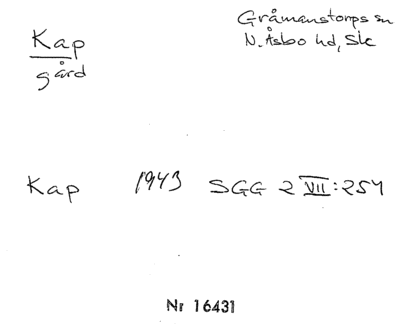 Kap
gård
Gråmanstorps sn
N. Åsbo hd, Sk
Kap 1943 SGG 2 VII:254
Nr 16431